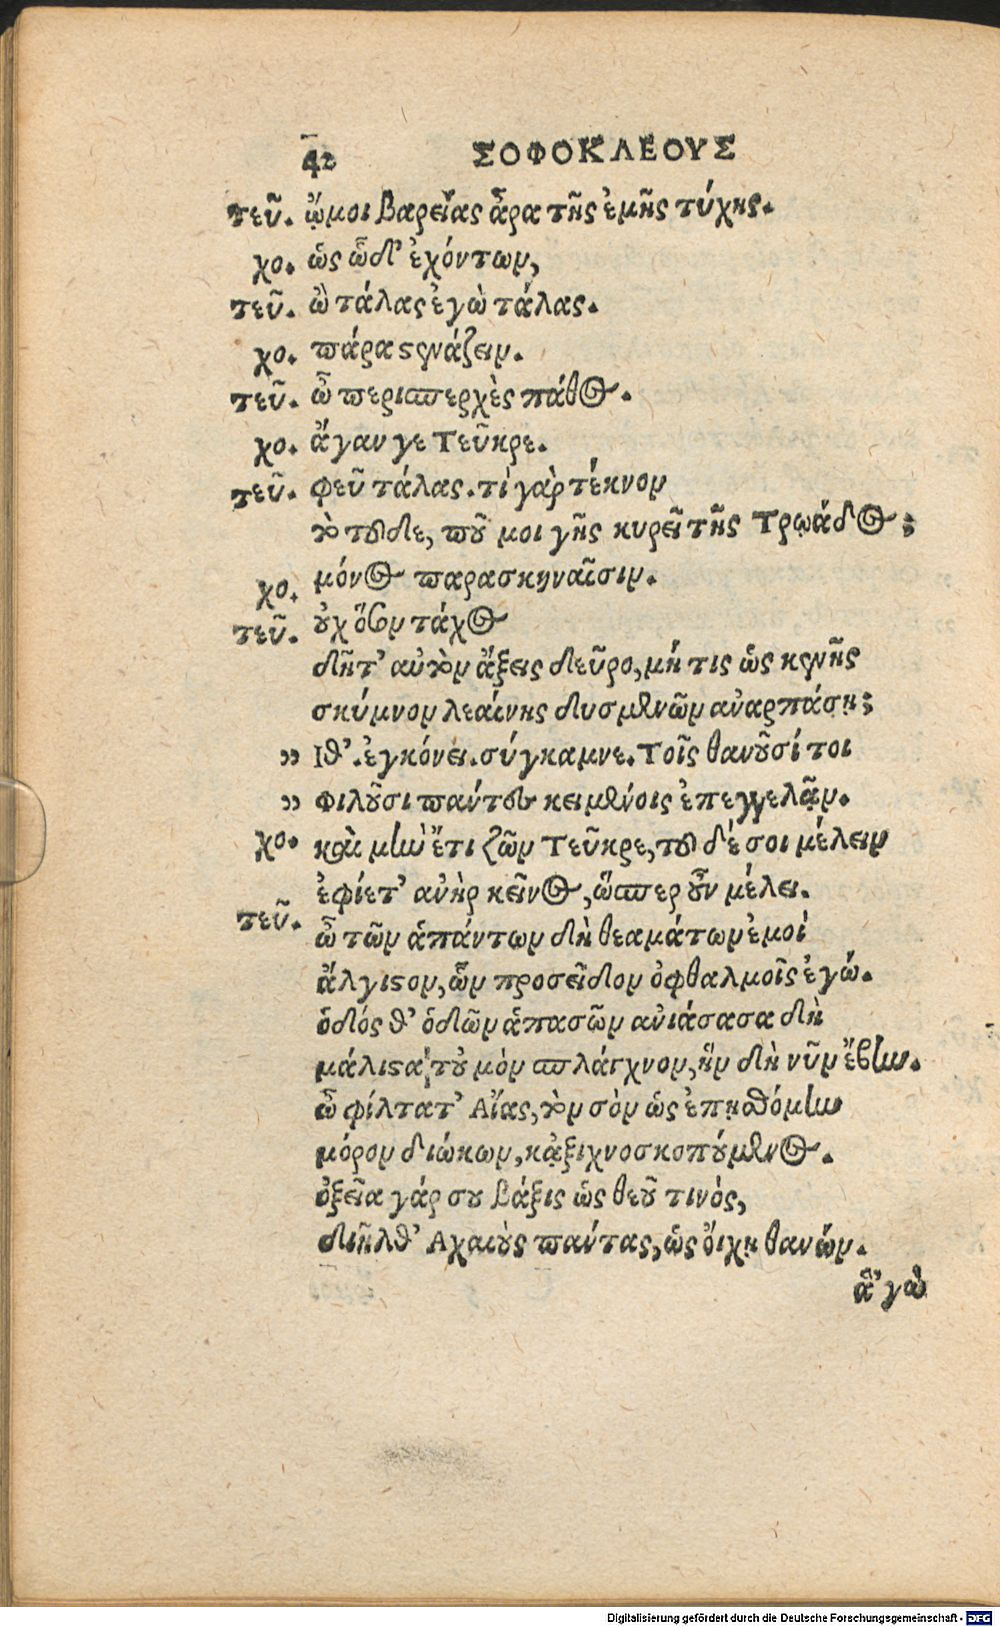 42 ΣΟΦΟΚΛΕΟΥΣ
τεῦ. ᾤμοι βαρείας ἆρα τῆς ἐμῆς τύχης.
χο. ὡς ὧδ' ἐχόντων,
τεῦ. ὢ τάλας ἐγὼ τάλας.
χο. πάρα στενάζειν.
τεῦ. ὦ περισπερχὲς πάθος.
χο. ἄγαν γε Τεῦκρε.
τεῦ. φεῦ τάλας. τί γὰρ τέκνον
τὸ τοῦδε, ποῦ μοι γῆς κυρεῖ τῆς Τρῳάδος;
χο. μόνος παρασκηναῖσιν.
τεῦ. οὐχ ὅσον τάχος
δῆτ' αὐτὸν ἄξεις δεῦρο, μή τις ὡς κενῆς
σκύμνον λεαίνης δυσμενῶν αναρπάσῃ;
„ Ιθ'. ἐγκόνει. σύγκαμνε. Τοῖς θανοῦσί τοι
„ Φιλοῦσι πάντες κειμένοις ἐπεγγελᾶν.
χο. καὶ μὴν ἔτι ζῶν Τεῦκρε, τοῦ δέ σοι μέλειν
ἐφίετ' ανὴρ κεῖνος, ὥσπερ οὖν μέλει.
τεῦ. ὦ τῶν ἁπάντων δὴ θεαμάτων ἐμοὶ
ἄλγιστον, ὧν προσεῖδον ὀφθαλμοῖς ἐγώ.
ὁδός θ' ὁδῶν ἁπασῶν ανιάσασα δὴ
μάλιστα τοὐμὸν σπλάγχνον, ἣν δὴ νῦν ἔβην.
ὦ φίλτατ' Αἴας, τὸν σὸν ὡς ἐπῃσθόμην
μόρον διώκων, κᾀξιχνοσκοπούμενος.
ὀξεῖα γάρ σου βάξις ὡς θεοῦ τινὸς,
διῆλθ' Αχαιοὺς πάντας, ὡς ὄιχῃ θανών.
ἃ 'γὼ
Digitalisierung gefördert durch die Deutsche Forschungsgemeinschaft - DFG